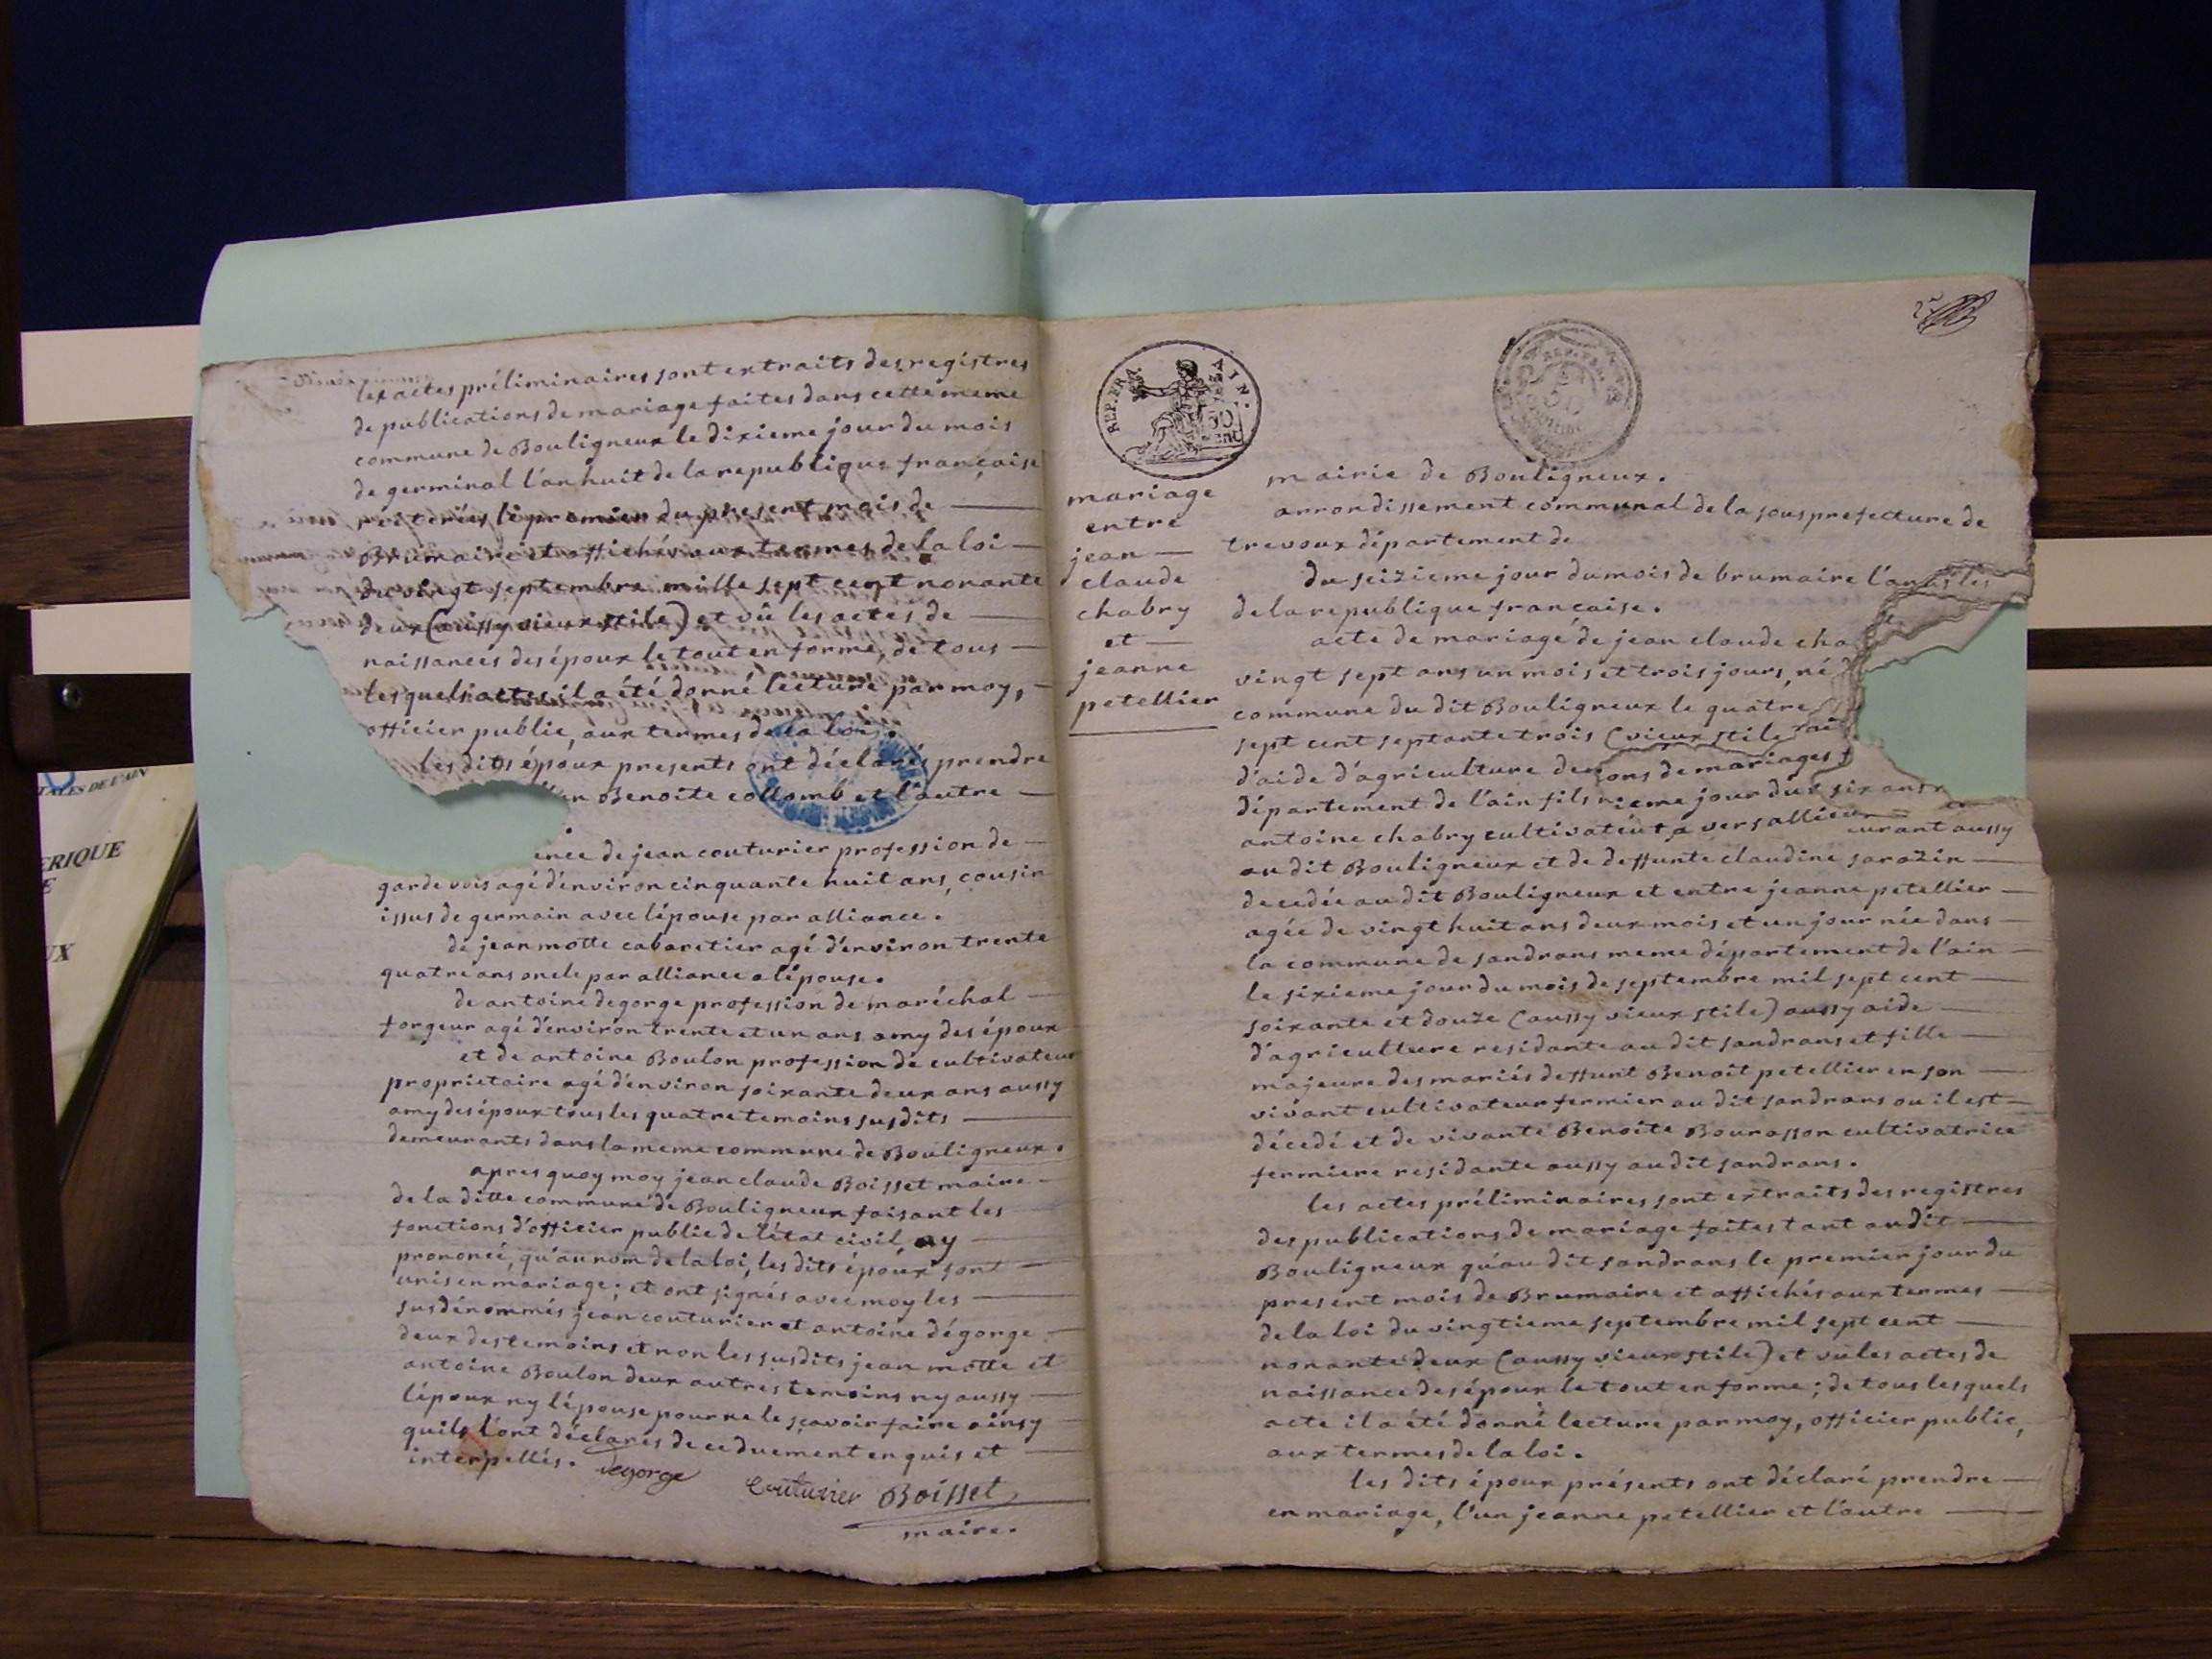 les actes préliminaires sont extraits des registres
de publications de mariage faites dans cette meme
commune de Bouligneux le dixieme jour du mois
de germinal l'an huit de la republique française
réiterées le premier du present mois de
Brumaire et affichés aux termes de la loi
du vingt septembre mille sept cent nonante
deux (aussy vieux stile) et vû les actes de
naissances des époux le tout en forme, de tous
lesquels actes il a été donné lecture par moy,
officier public, aux termes de la loi.
les dits époux presents ont déclarés prendre
Benoite collomb et l'autre
de jean couturier profession de
garde bois agé d'environ cinquante huit ans, cousin
issus de germain avec l'épouse par alliance.
de jean motte cabaretier agé d'environ trente
quatre ans oncle par alliance a l'épouse.
de antoine degorge profession de maréchal
forgeur agé d'environ trente et un ans amy des époux
et de antoine Boulon profession de cultivateur
proprietaire agé d'environ soixante deux ans aussy
amy des époux tous les quatre temoins susdits
demeurants dans la meme commune de Bouligneux.
apres quoy moy jean claude Boisset maire
de la ditte commune de Bouligneux faisant les
fonctions d'officier public de l'état civil ay
prononcé, qu'au nom de la loi, les dits époux sont
unis en mariage; et ont signés avec moy les
susdénommés jean couturier et antoine dégorge
deux des temoins et non les susdits jean motte et
antoine Boulon deux autres temoins ny aussy
l'époux ny l'épouse pour ne le sçavoir faire ainsy
quils l'ont déclarés de ce duement enquis et
interpellés. Degorge
Couturier Boisset
maire.
REP. FRA. AIN.
50 cent
REP. FRA.
mariage
entre
jean
claude
chabry
et
jeanne
petellier
mairie de Bouligneux.
arrondissement communal de la sous prefecture de
trevoux département de
du seizieme jour du mois de brumaire l'an
de la republique française.
acte de mariage de jean claude cha
vingt sept ans un mois et trois jours, né
commune du dit Bouligneux le quatre
sept cent septante trois (vieux stile
d'aide d'agriculture de ons de mariages
département de l'ain fils ieme jour du six ans
antoine chabry cultivateur a versallieux
eurant aussy
au dit Bouligneux et de deffunte claudine sarozin
decedée au dit Bouligneux et entre jeanne petellier
agée de vingt huit ans deux mois et un jour née dans
la commune de sandrans meme département de l'ain
le sixieme jour du mois de septembre mil sept cent
soixante et douze (aussy vieux stile) aussy aide
d'agriculture residante au dit sandrans et fille
majeure des mariés deffunt Benoit petellier en son
vivant cultivateur fermier au dit sandrans ou il est
décedé et de vivante Benoite Bourasson cultivatrice
fermiere residante aussy au dit sandrans.
les actes préliminaires sont extraits des registres
des publications de mariage faites tant au dit
Bouligneux qu'au dit sandrans le premier jour du
present mois de Brumaire et affichés aux termes
de la loi du vingtieme septembre mil sept cent
nonante deux (aussy vieux stile) et vu les actes de
naissance des époux le tout en forme; de tous lesquels
acte il a été donné lecture par moy, officier public,
aux termes de la loi.
les dits époux présents ont déclaré prendre
en mariage, l'un jeanne petellier et l'autre
ERIQUE
UX